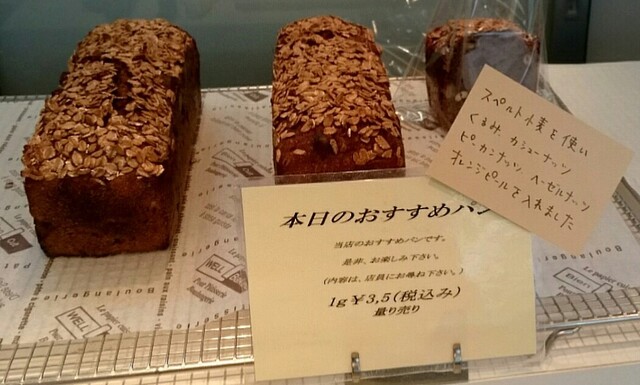 本日のおすすめパン
当店のおすすめパンです。
是非、お楽しみ下さい。
(内容は、店員にお尋ね下さい。)
1g ¥3,5(税込み)
量り売り
スペルト小麦を使い
くるみ、カシューナッツ
ピーカンナッツ、ヘーゼルナッツ
オレンジピールを入れました
Boulangerie
WELL
Boulangerie
WELL